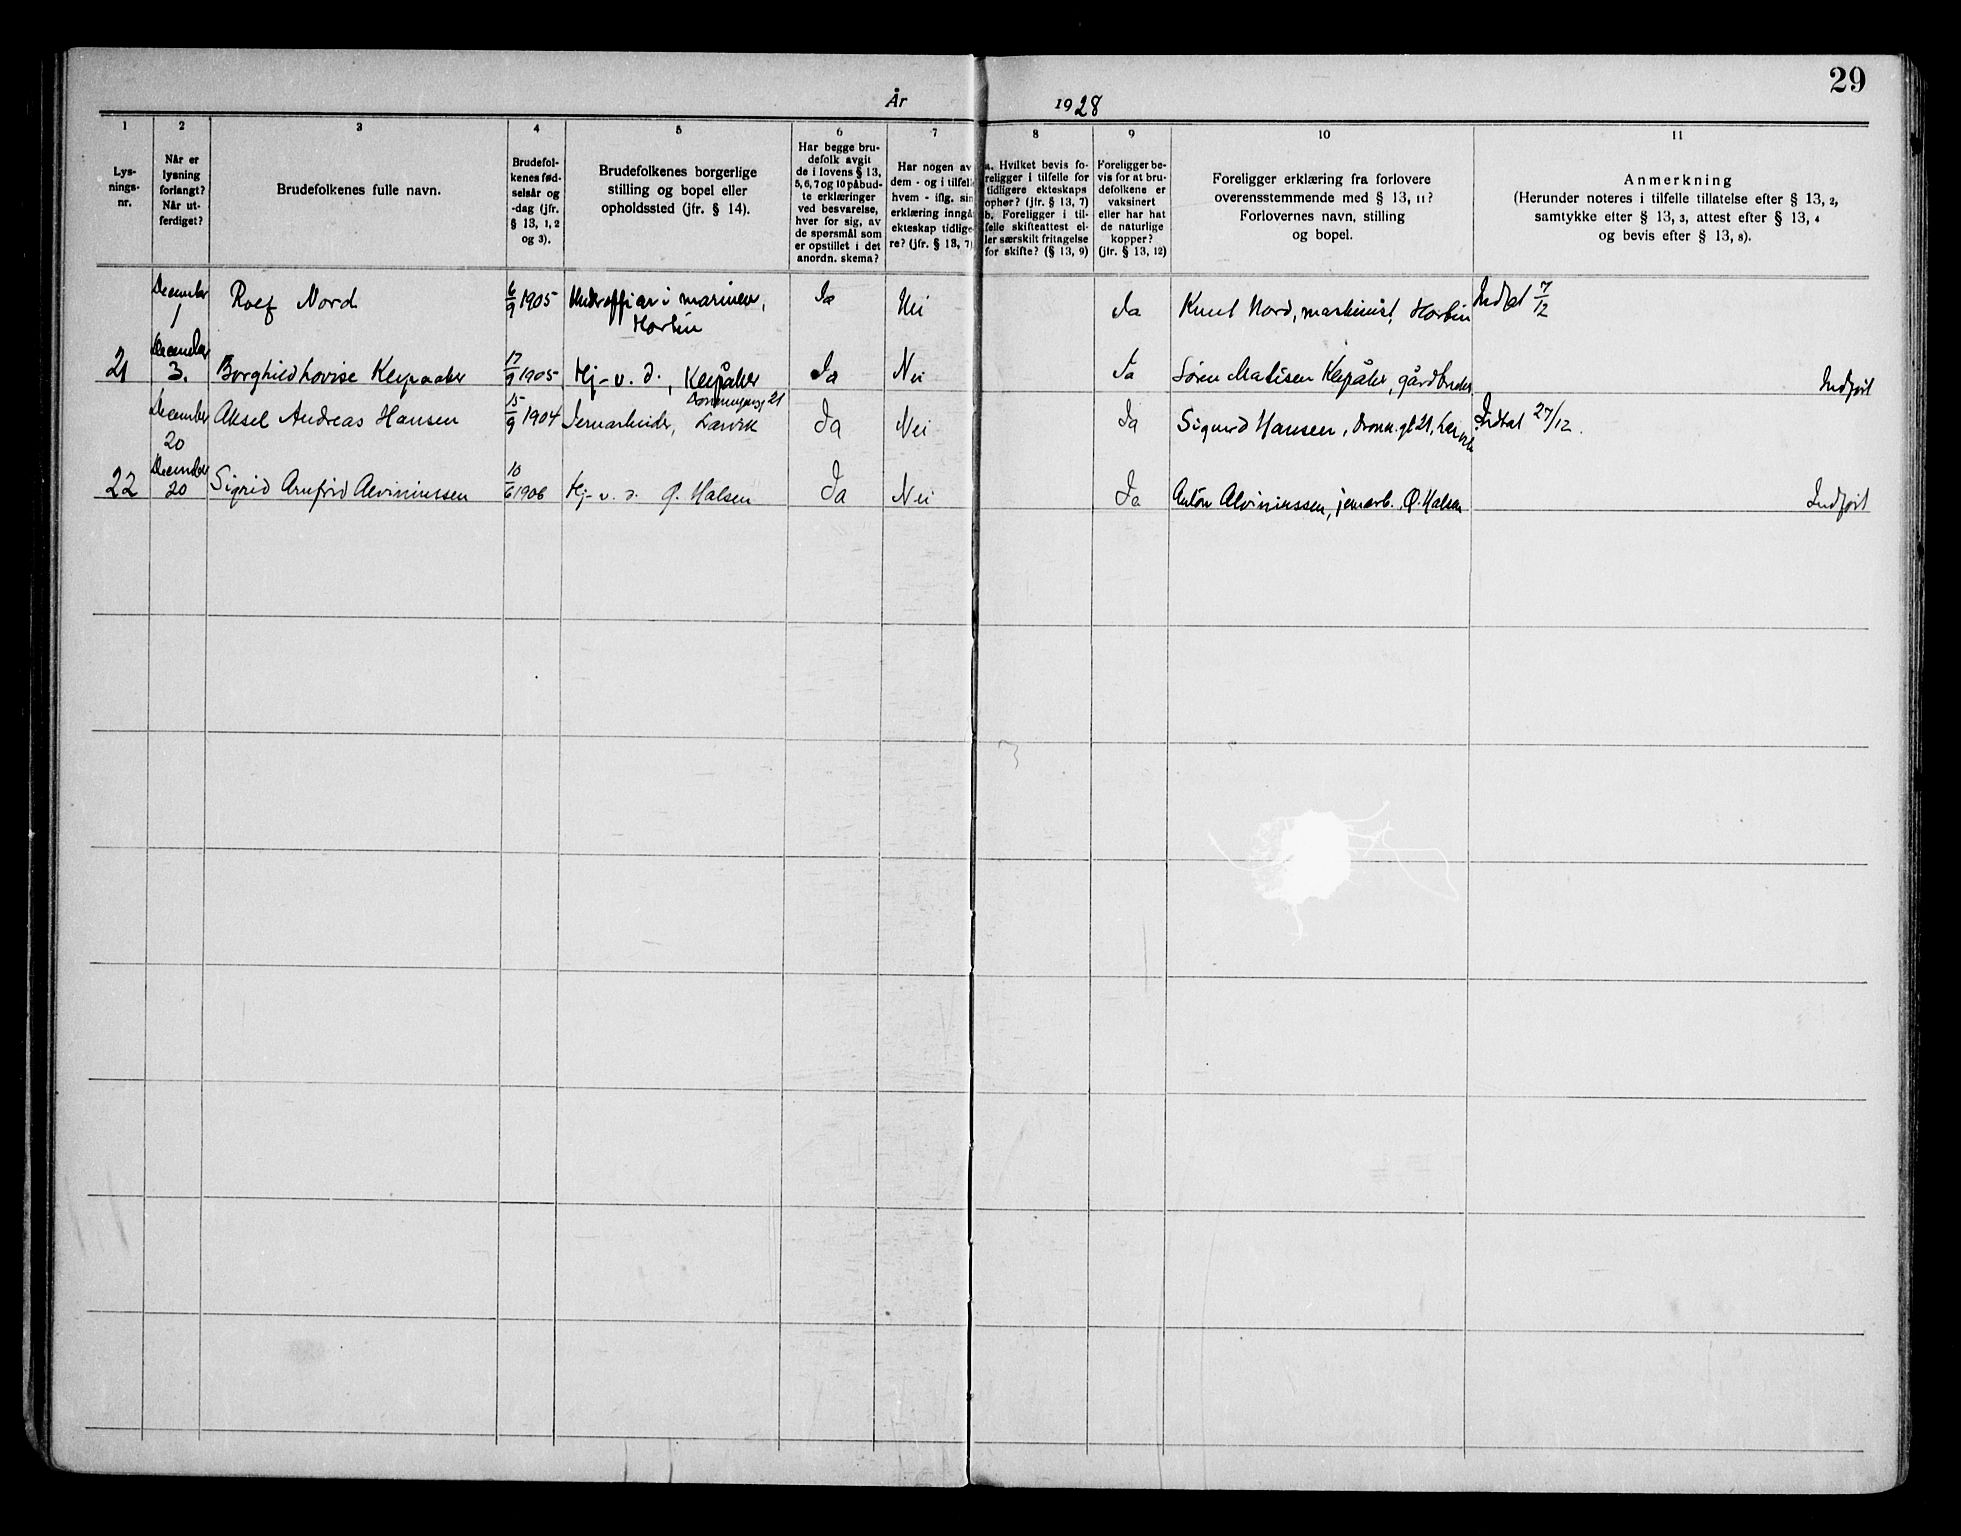 29
År 1928
1 2 3 4 5 6 7 8 9 10 11
Lys-
nings-
nr.
Når er
lysning
forlangt?
Når ut-
ferdiget?
Brudefolkenes fulle navn.
Brudefol-
kenes fød-
selsår og
-dag (jfr.
§ 13, 1, 2
og 3).
Brudefolkenes borgerlige
stilling og bopel eller
opholdssted (jfr. § 14).
Har begge bru-
defolk avgit
de i lovens § 13,
5, 6, 7 og 10 påbud-
te erklæringer
ved besvarelse,
hver for sig, av
de spørsmål som
er opstillet i det
anordn. skema?
Har nogen av
dem - og i tilfelle
hvem - iflg. sin
erklæring inngå
ekteskap tidlige-
re? (jfr. § 13, 7)
a. Hvilket bevis fo-
religger i tilfelle for
tidligere ekteskaps
ophør? (jfr. § 13, 7)
b. Foreligger i til-
felle skifteattest el-
ler særskilt fritagelse
for skifte? (§ 13, 9)
Foreligger be-
vis for at bru-
defolkene er
vaksinert
eller har hat
de naturlige
kopper?
(jfr. § 13, 12)
Foreligger erklæring fra forlovere
overensstemmende med § 13, 11?
Forlovernes navn, stilling
og bopel.
Anmerkning
(Herunder noteres i tilfelle tillatelse efter § 13, 2,
samtykke efter § 13, 3, attest efter § 13, 4
og bevis efter § 13, 8).
December 1 Rolf Nord 6/9 1905 Underofficer i marinen, Ja Nei Ja Knut Nord, maskinist, Horten 7/12
Horten
21 December 3. Borghild Lovise Klepaaker 17/9 1905 Hj-v. d., Klepåker Ja Nei Ja Søren Matisen Klepåker, gårdbruker Indført
Dronningensg 21
December 20 Aksel Andreas Hansen 15/9 1904 Jernarbeider, Larvik Ja Nei Ja Sigurd Hansen, Dronn. gt 21, Larvik 27/12.
22 December 20 Sigrid Arnfrid Alvinussen 10/6 1906 Hj-v. d. Ø. Halsen Ja Nei Ja Anton Alvinussen, jernarb. Ø. Halsen Indført